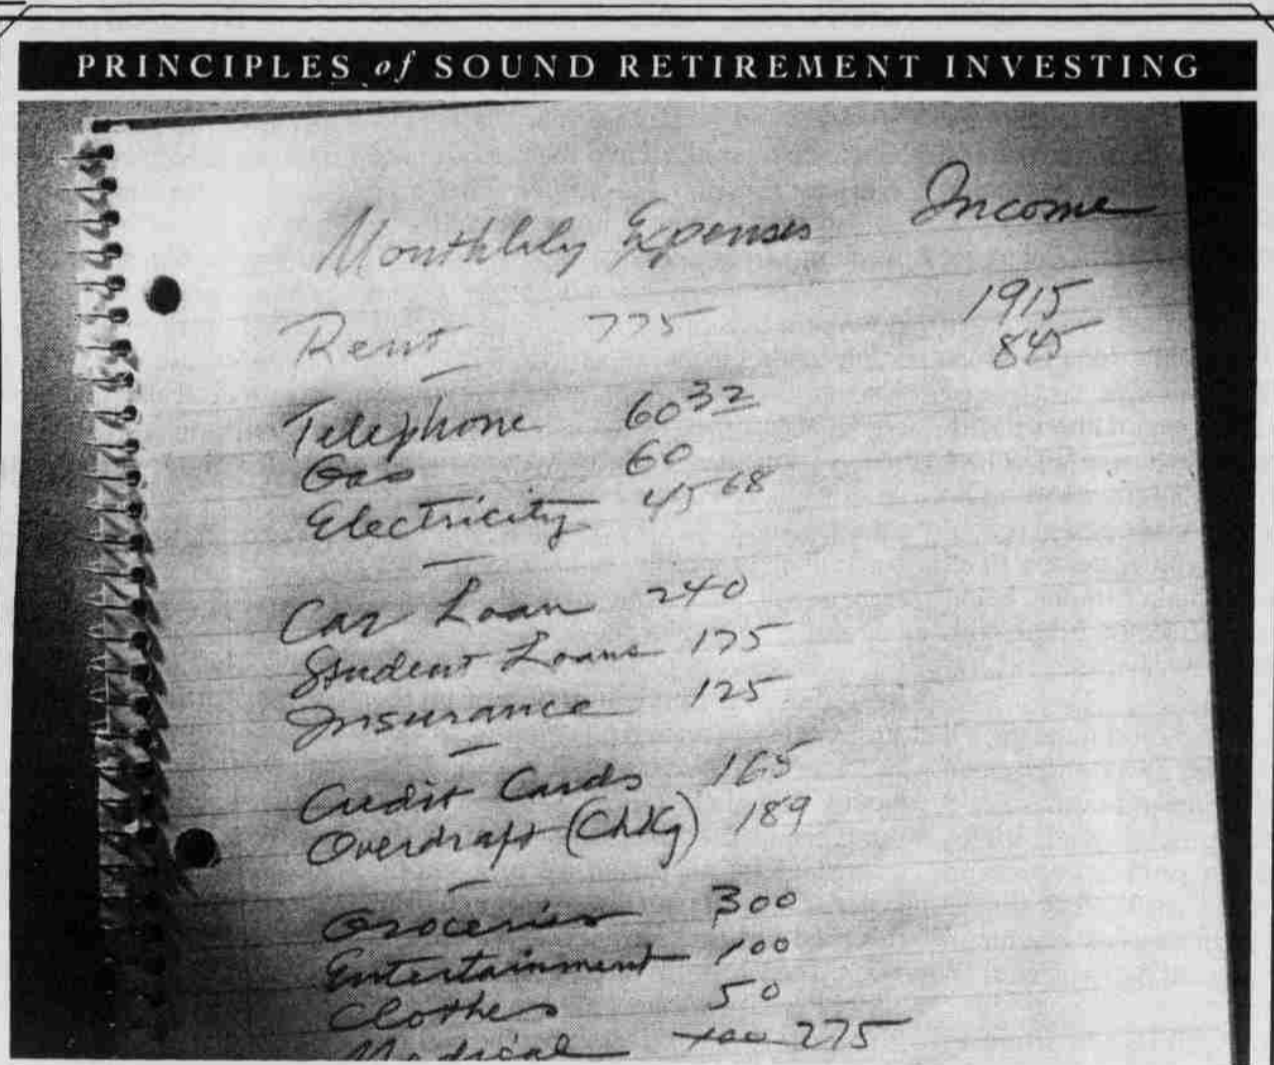 PRINCIPLES of SOUND RETIREMENT INVESTING
Monthlily Expenses Income
Rent 775 1915
845
Telephone 60 32
Gas 60
Electricity 45 68
Car Loan 240
Student Loans 175
Insurance 125
Credit Cards 165
Overdraft (ChKg) 189
Groceries 300
Entertainment 100
Clothes 50
Medical 100 275